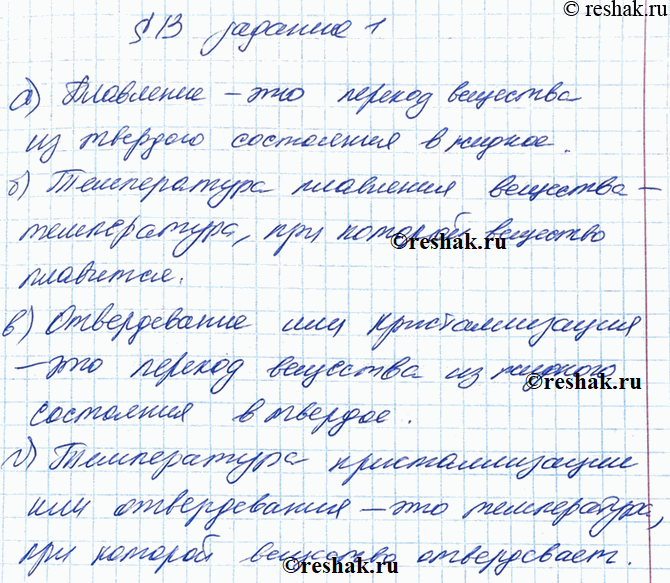 © reshak.ru
§ 13 задание 1
а) Плавление – это переход вещества
из твердого состояния в жидкое.
б) Температура плавления вещества –
температура, при которой вещество
©reshak.ru
плавится.
в) Отвердевание или кристаллизация
– это переход вещества из жидкого
©reshak.ru
состояния в твердое.
г) Температура кристаллизации
или отвердевания – это температура,
©reshak.ru
при которой вещество отвердевает.